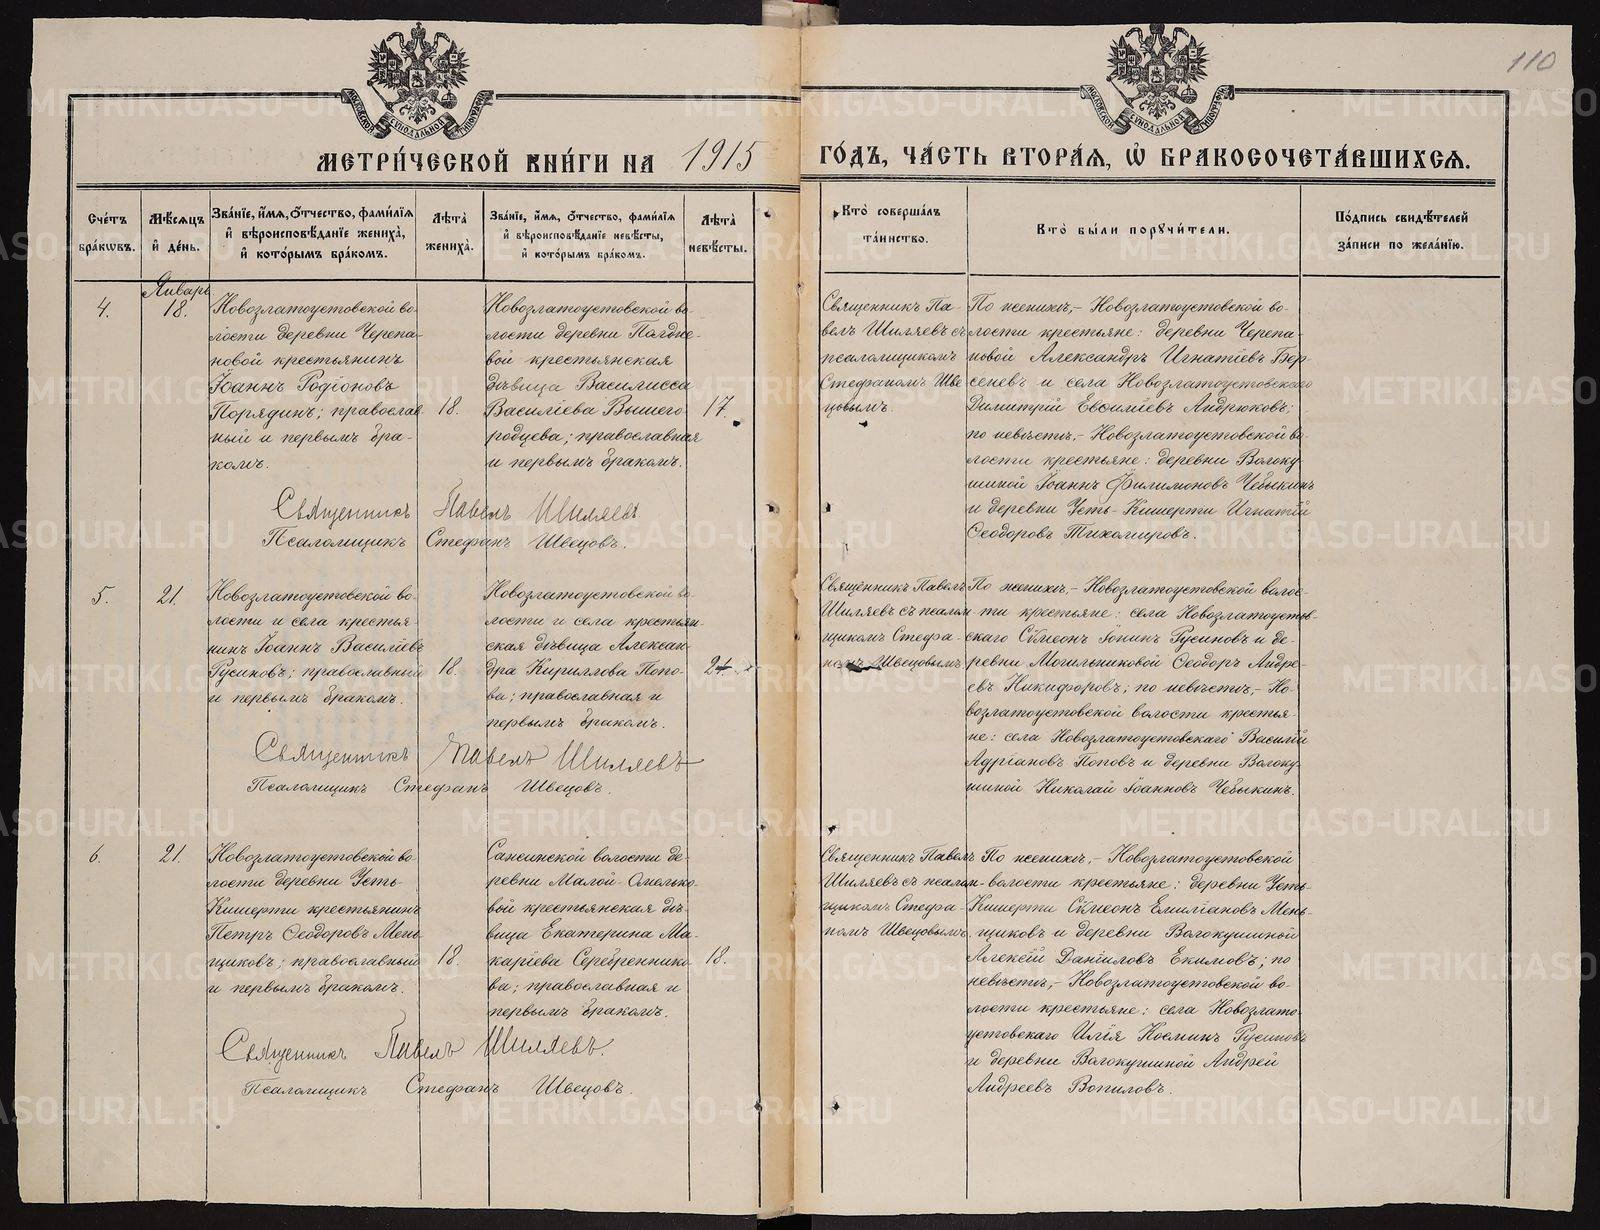 110
МЕТРИ́ЧЕСКОЙ КНИ́ГИ НА 1915 ГО́ДЪ, ЧА́СТЬ ВТОРА́Ѧ, Ѡ҆ БРАКОСОЧЕТА́ВШИХСѦ.
Сче́тъ бра́кѡвъ.
Мѣ́сѧцъ и҆ де́нь.
Зва́нїе, и҆́мѧ, о҆́тчество, фами́лїѧ и҆ вѣроисповѣ́данїе жениха̀, и҆ кото́рымъ бра́комъ.
Лѣ́та жениха̀.
Зва́нїе, и҆́мѧ, о҆́тчество, фами́лїѧ и҆ вѣроисповѣ́данїе невѣ́сты, и҆ кото́рымъ бра́комъ.
Лѣ́та невѣ́сты.
Кто̀ соверша́лъ та́инство.
Кто̀ бы́ли порꙋчи́тели.
По́дпись свидѣ́телей за́писи по жела́нїю.
Январь
4.
18.
Новозлатоустовской во-
лости деревни Черепа-
новой крестьянинъ
Іоаннъ Родіоновъ
Порядинъ; православ-
ный и первымъ бра-
комъ.
18.
Новозлатоустовской во-
лости деревни Полдне-
вой крестьянская
дѣвица Василисса
Василіева Вышего-
родцева; православная
и первымъ бракомъ.
17.
Священникъ Па-
велъ Шиляевъ съ
псаломщикомъ
Стефаномъ Шве-
цовымъ.
По женихѣ,- Новозлатоустовской во-
лости крестьяне: деревни Черепа-
новой Александръ Игнатіевъ Бер-
сеневъ и села Новозлатоустовскаго
Димитрій Евсиліевъ Андрюковъ;
по невѣстѣ,- Новозлатоустовской во-
лости крестьяне: деревни Волоку-
шиной Іоаннъ Филимоновъ Чебыкинъ
и деревни Усть-Кишерти Игнатій
Ѳеодоровъ Тихомировъ.
Священникъ Павелъ Шиляевъ
Псаломщикъ Стефанъ Швецовъ.
5.
21.
Новозлатоустовской во-
лости и села крестья-
нинъ Іоаннъ Василіевъ
Русиновъ; православный
и первымъ бракомъ.
18.
Новозлатоустовской во-
лости и села крестьян-
ская дѣвица Алексан-
дра Кириллова Попо-
ва; православная и
первымъ бракомъ.
Священникъ Павелъ
Шиляевъ съ псалом-
щикомъ Стефа-
номъ Швецовымъ
По женихѣ,- Новозлатоустовской волос-
ти крестьяне: села Новозлатоустов-
скаго Сѵмеонъ Іонинъ Русиновъ и де-
ревни Могильниковой Ѳеодоръ Андре-
евъ Никифоровъ; по невѣстѣ,- Но-
возлатоустовской волости крестья-
не: села Новозлатоустовскаго Василій
Адріановъ Поповъ и деревни Волоку-
шиной Николай Іоанновъ Чебыкинъ.
Священникъ Павелъ Шиляевъ
Псаломщикъ Стефанъ Швецовъ.
6.
21.
Новозлатоустовской во-
лости деревни Усть-
Кишерти крестьянинъ
Петръ Ѳеодоровъ Мень-
щиковъ; православный
и первымъ бракомъ.
18.
Сансинской волости де-
ревни Малой-Омелько-
вой крестьянская дѣ-
вица Екатерина Ма-
каріева Серебреннико-
ва; православная и
первымъ бракомъ.
18.
Священникъ Павелъ
Шиляевъ съ псалом-
щикомъ Стефа-
номъ Швецовымъ.
По женихѣ,- Новозлатоустовской
волости крестьяне: деревни Усть-
Кишерти Сѵмеонъ Емиліановъ Мень-
щиковъ и деревни Волокушиной
Алексій Даніиловъ Екимовъ; по
невѣстѣ,- Новозлатоустовской во-
лости крестьяне: села Новозлато-
устовскаго Илія Косминъ Русиновъ
и деревни Волокушиной Андрей
Андреевъ Вопиловъ.
Священникъ Павелъ Шиляевъ.
Псаломщикъ Стефанъ Швецовъ.
METRIKI.GASO-URAL.RU